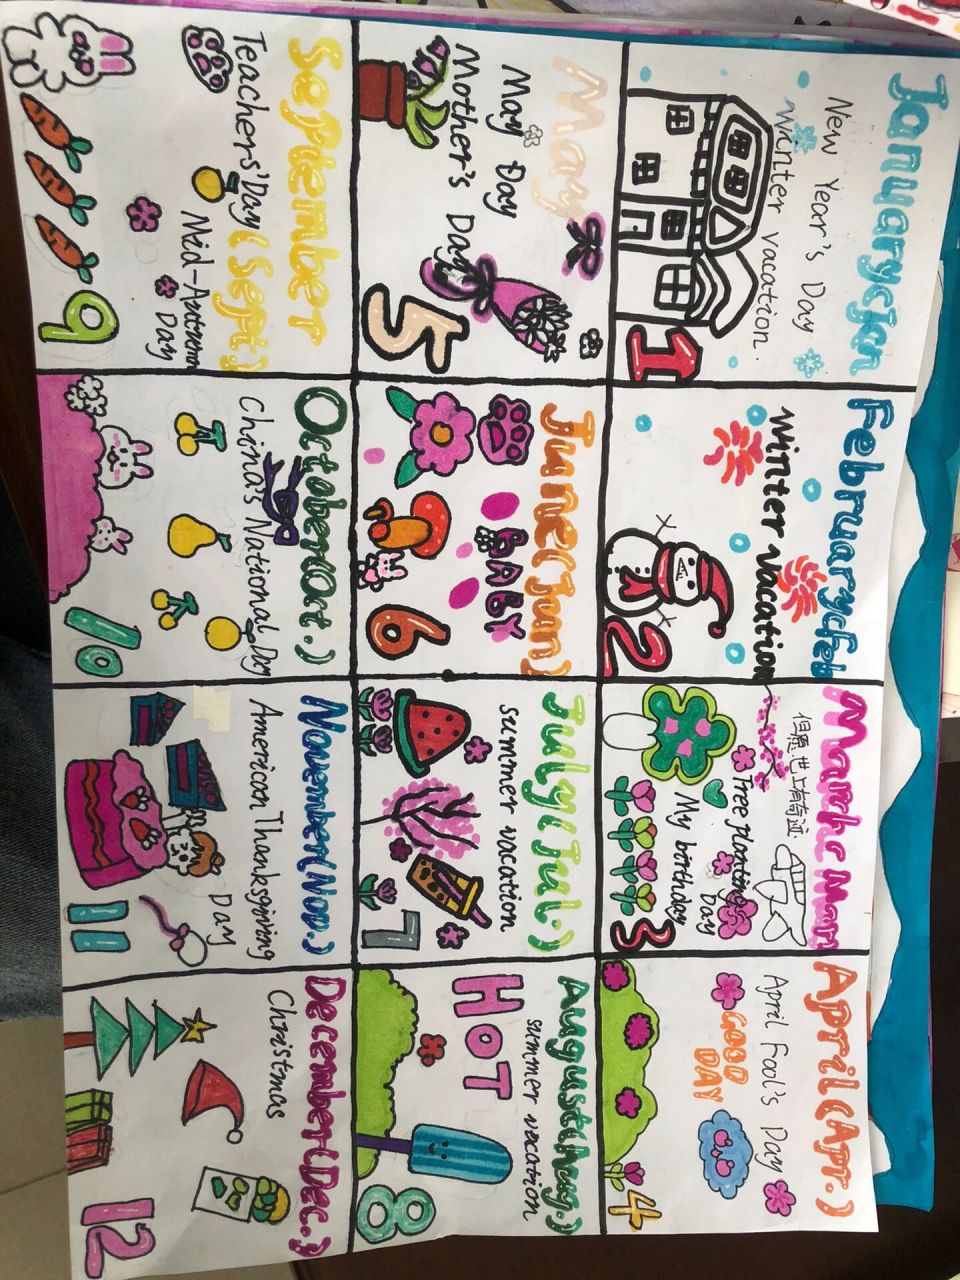 January(Jan
New Year's Day
Winter vacation.
1
February(Feb
winter vacation
2
March(Mar)
但愿世上有奇迹
Free planting Day
My birthday
3
April(Apr.)
April Fool's Day
GOOD
DAY
4
May
May Day
Mother's Day
5
June(Jun)
BABY
6
July(Jul.)
summer vacation
7
August(Aug.)
summer vacation
HOT
8
September
(Sept.)
Teachers' Day
Mid-Autumn
Day
9
October(Oct.)
China's National Day
10
November(Nov.)
American Thanksgiving
Day
11
December(Dec.)
Christmas
12